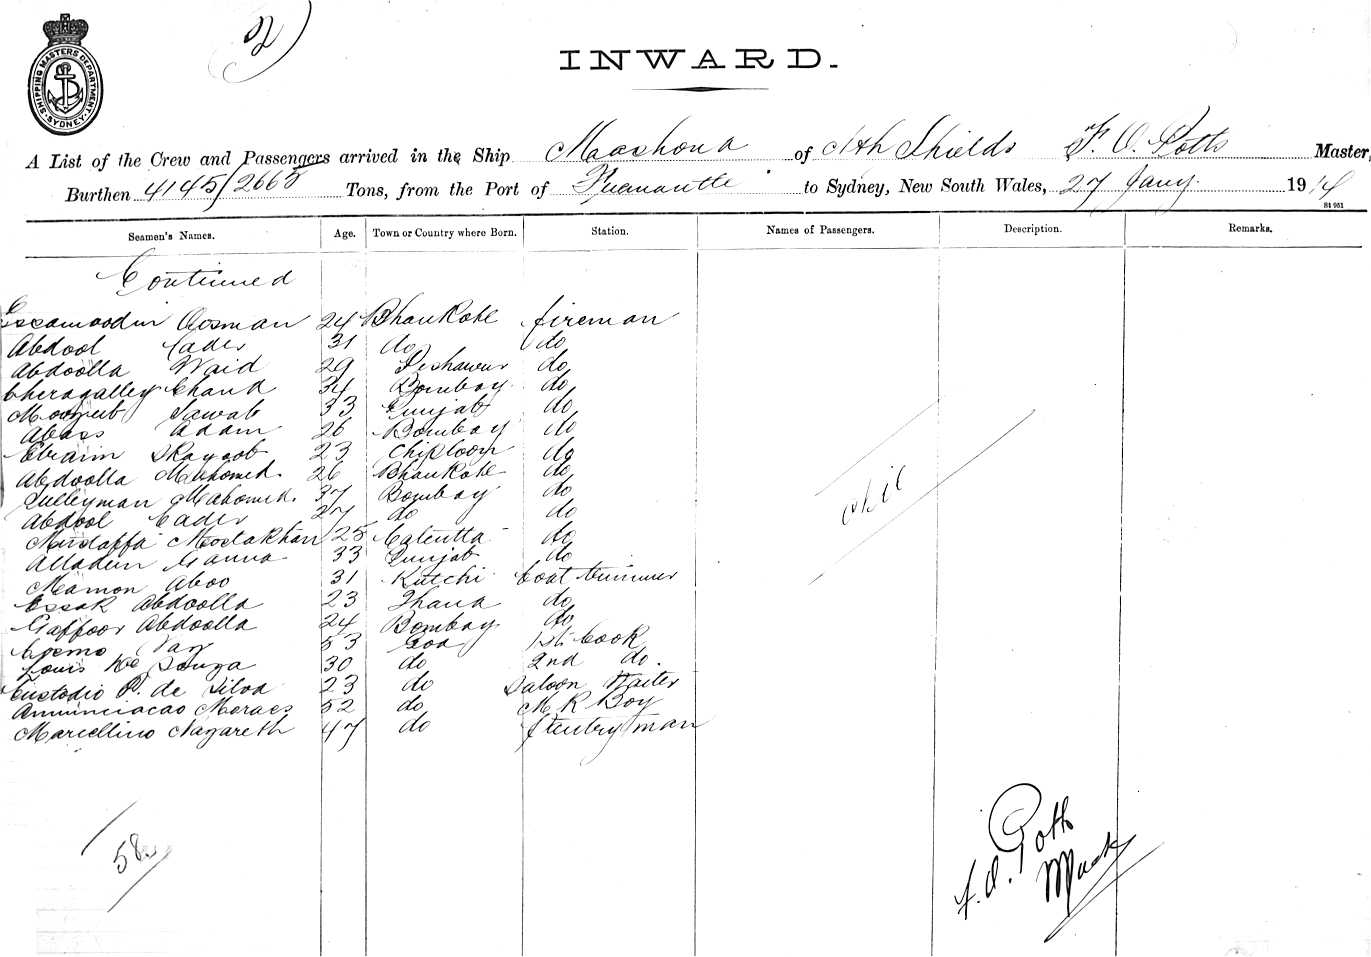 2
INWARD.
SHIPPING MASTERS DEPARTMENT. SYDNEY.
A List of the Crew and Passengers arrived in the Ship Mashona of Nth Shields F. O. Potts Master,
Burthen 4145/2665 Tons, from the Port of Fremantle to Sydney, New South Wales, 27 Jany. 1914
Seamen's Names. Age. Town or Country where Born. Station. Names of Passengers. Description. Remarks.
Continued
Oosman 24 Bhankote fireman
Abdool Cader 31 do do
Abdoolla Waid 29 Peshawur do
Cheragalley Chand 34 Bombay do
33 Punjab do
Abass Adam 26 Bombay do
Ebraim 23 Chiploon do
Abdoolla Mahomed. 26 Bhankote do
Sulleyman Mahomed. 37 Bombay do
Abdool Cader 27 do do
Mustaffa Mostakhan 25 Calcutta do
Alladin 33 Punjab do
Mamon Aboo 31 Kutchi Coal trimmer
Essak Abdoolla 23 Thana do
Gaffoor Abdoolla 24 Bombay do
Cosmo Vaz 53 Goa 1st Cook
Louis De Souza 30 do 2nd do.
Custodio P. de Silva 23 do Saloon Waiter
Annunciacao Moraes 52 do M R Boy
Marcellino Nazareth 47 do Pantryman
Nil
58
F. O. Potts